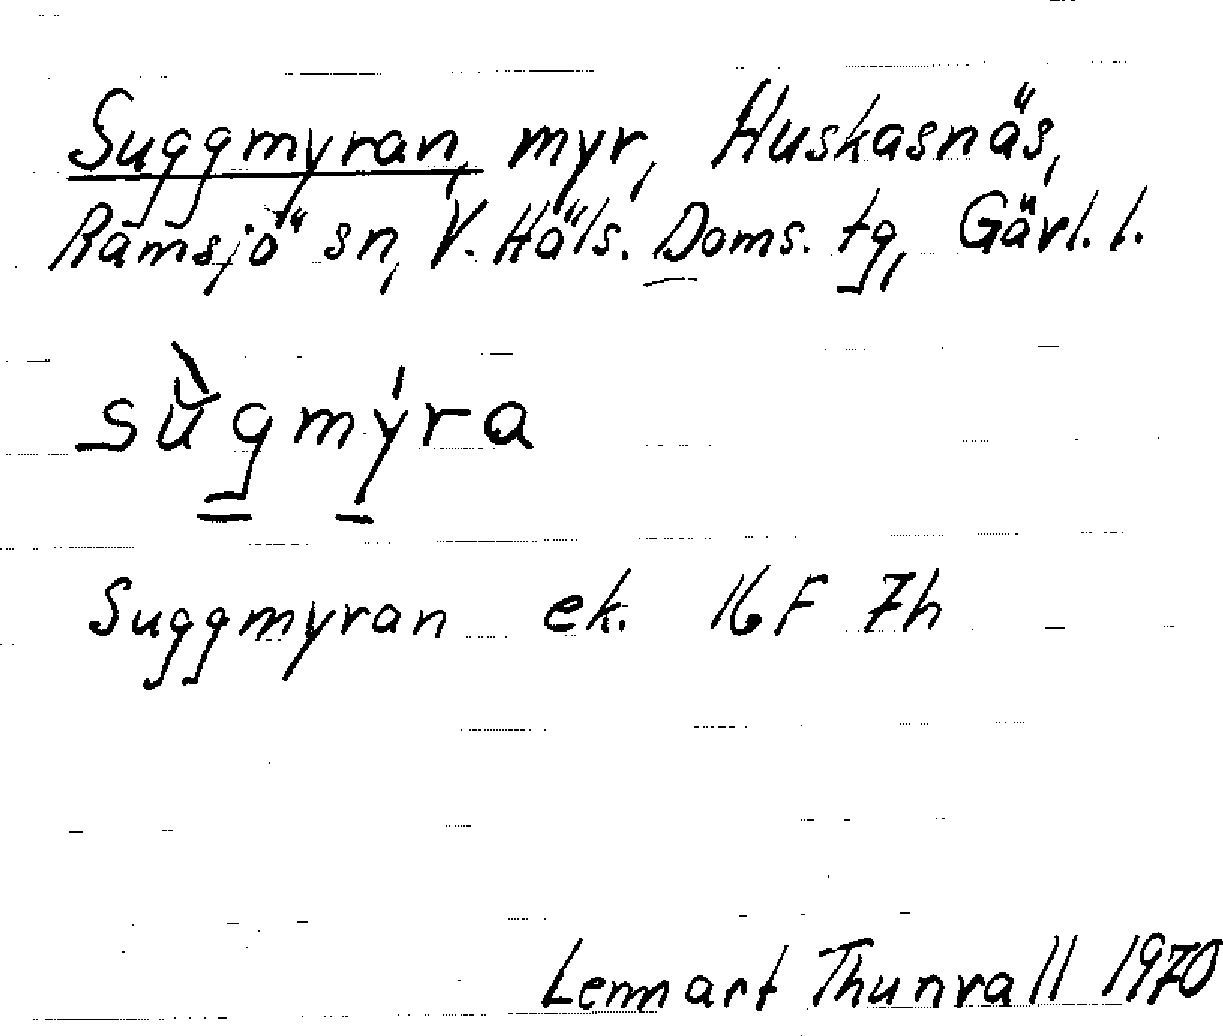 Suggmyran, myr, Huskasnäs,
Ramsjö sn, V. Häls. Doms. tg, Gävl. l.
sùgmýra
Suggmyran ek. 16F 7h
Lennart Thunvall 1970